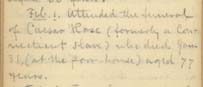 Feb. 1. Attended the funeral
of Caesar Rose (formerly a Con-
necticut slave) who died Jan.
31, (at the poor-house) aged 77
years.